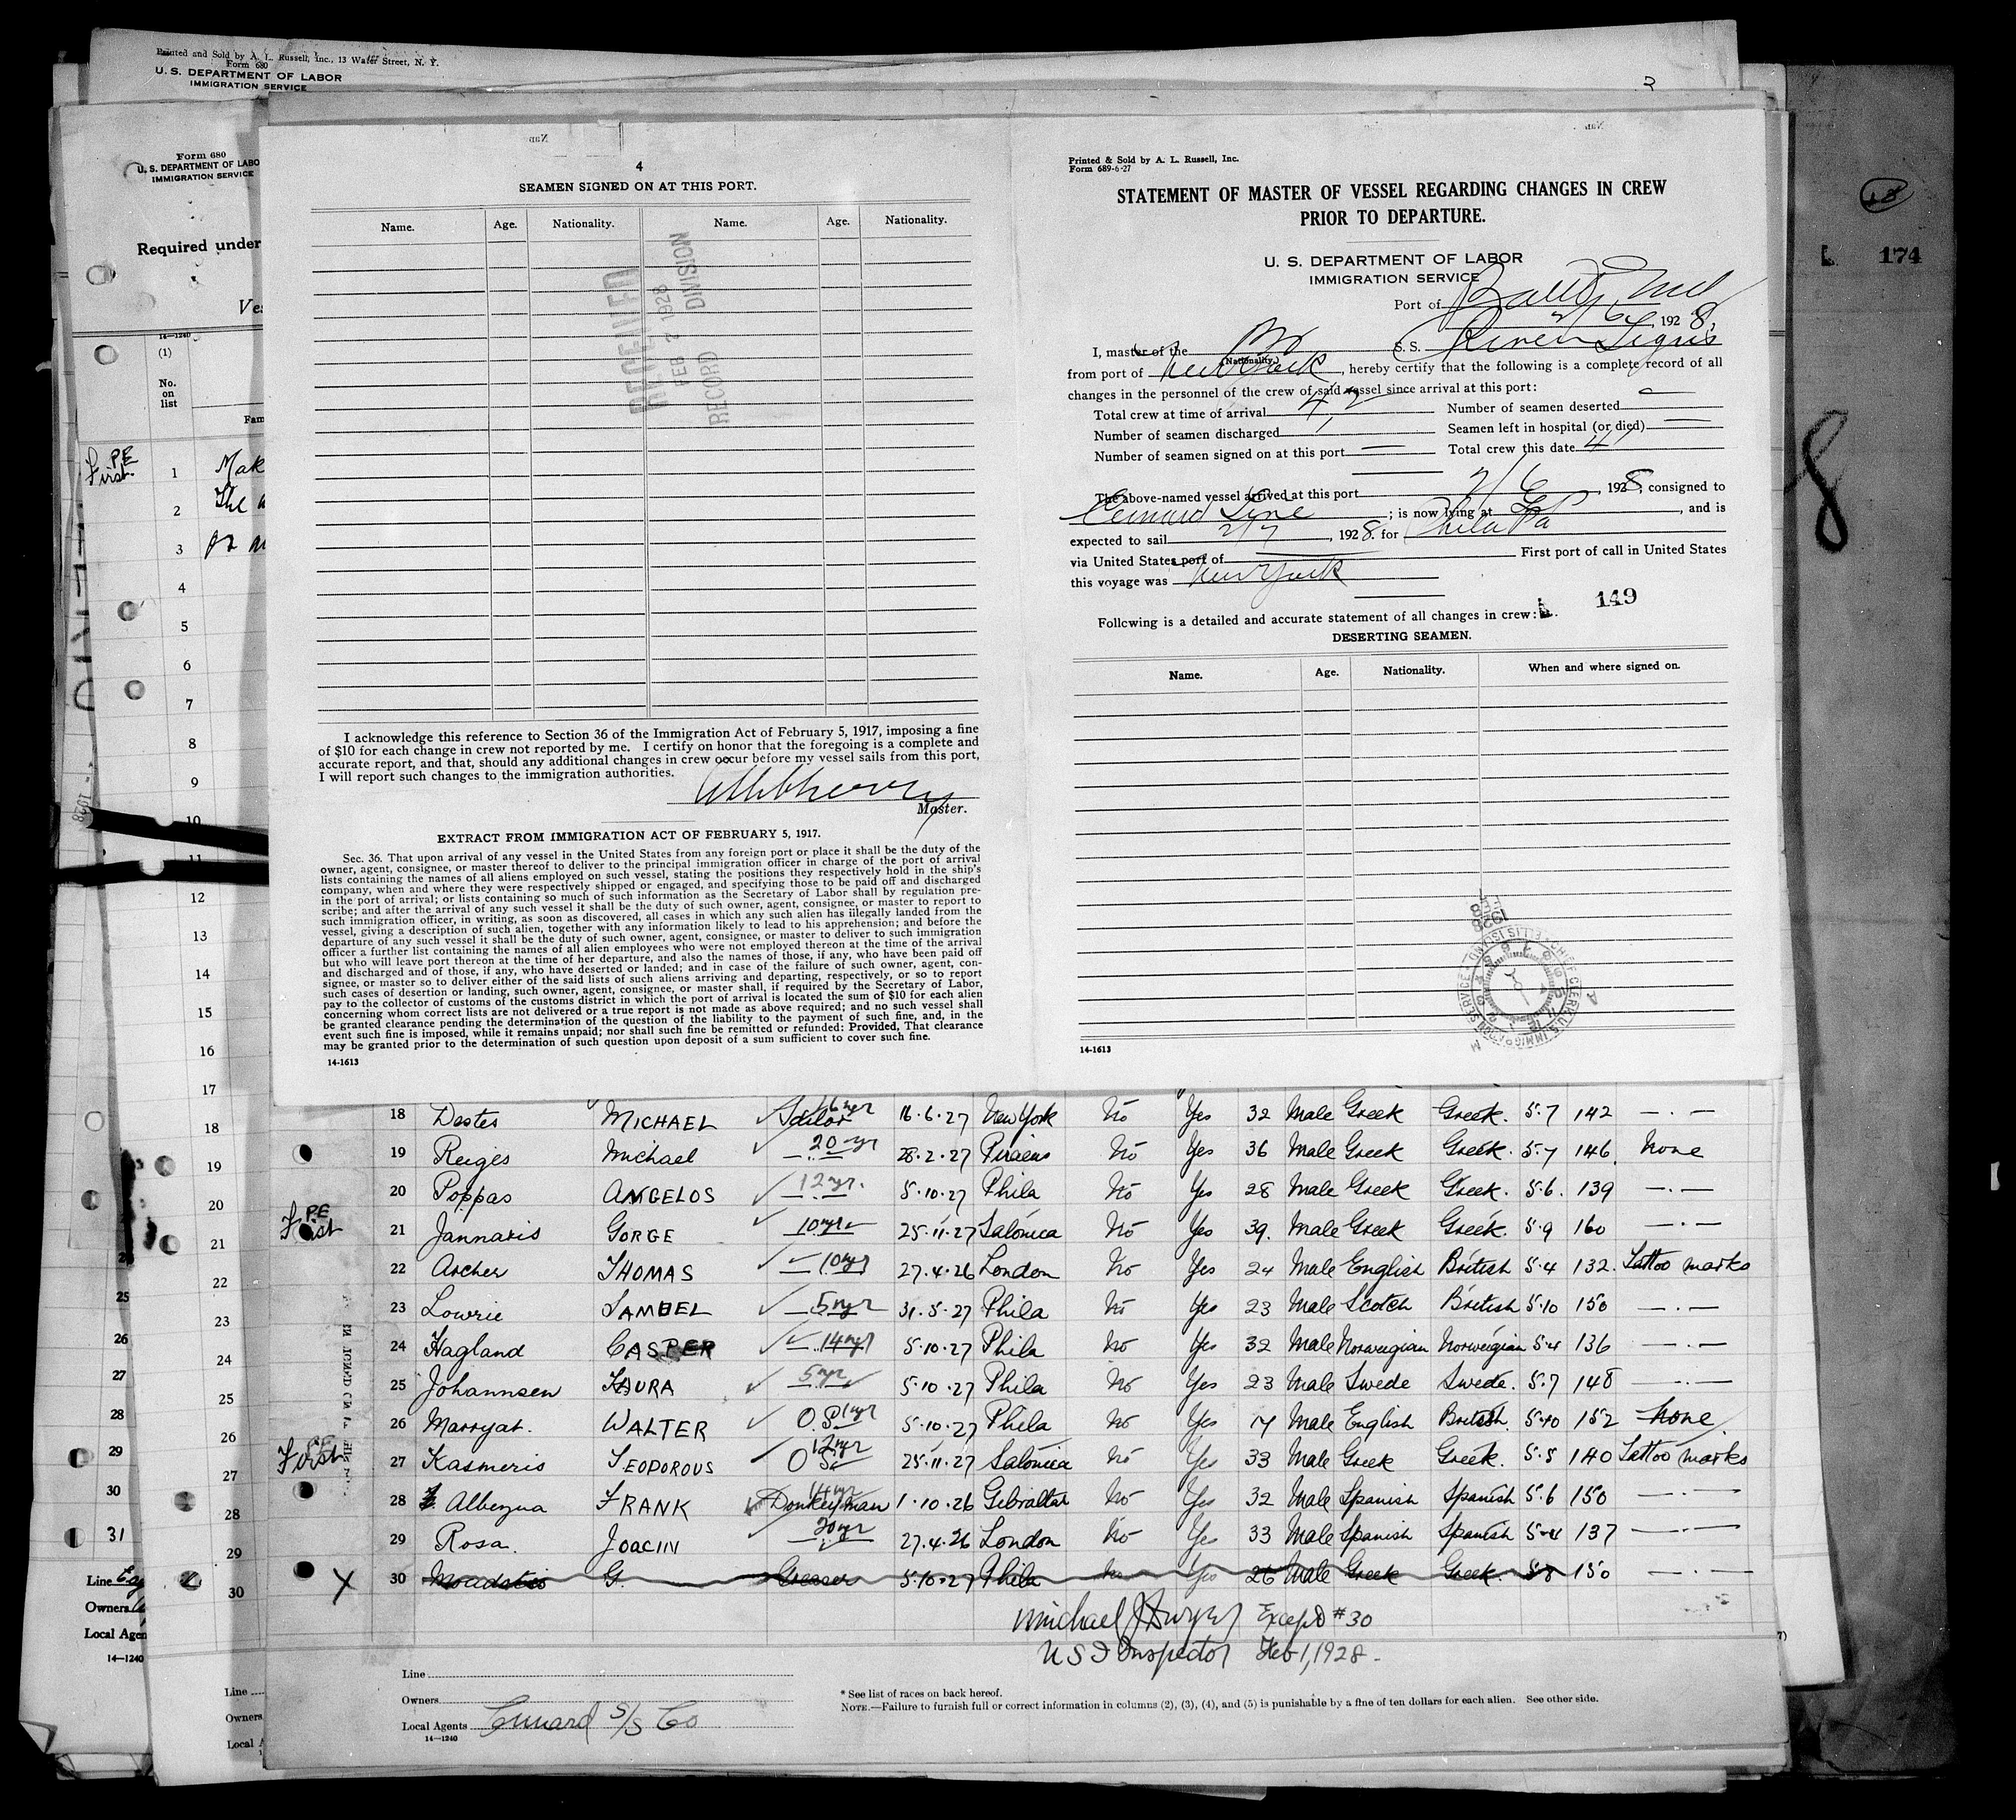 Printed and Sold by A. L. Russell, Inc., 13 Water Street, N. Y.
Form 680
U. S. DEPARTMENT OF LABOR
IMMIGRATION SERVICE
3
Form 680
U. S. DEPARTMENT OF LABO
IMMIGRATION SERVICE
Required under
Ves
14—1240
(1)
No.
on
list
Fam
PE
First.
1 Mak
2 The
3
4
5
6
7
8
9
10
11
12
13
14
15
16
17
18
19
20
21
22
23
24
25
26
27
28
29
30
4
SEAMEN SIGNED ON AT THIS PORT.
Name. Age. Nationality. Name. Age. Nationality.
RECEIVED
FEB 2 1928
RECORD DIVISION
I acknowledge this reference to Section 36 of the Immigration Act of February 5, 1917, imposing a fine
of $10 for each change in crew not reported by me. I certify on honor that the foregoing is a complete and
accurate report, and that, should any additional changes in crew occur before my vessel sails from this port,
I will report such changes to the immigration authorities.
Master.
EXTRACT FROM IMMIGRATION ACT OF FEBRUARY 5, 1917.
Sec. 36. That upon arrival of any vessel in the United States from any foreign port or place it shall be the duty of the
owner, agent, consignee, or master thereof to deliver to the principal immigration officer in charge of the port of arrival
lists containing the names of all aliens employed on such vessel, stating the positions they respectively hold in the ship's
company, when and where they were respectively shipped or engaged, and specifying those to be paid off and discharged
in the port of arrival; or lists containing so much of such information as the Secretary of Labor shall by regulation pre-
scribe; and after the arrival of any such vessel it shall be the duty of such owner, agent, consignee, or master to report to
such immigration officer, in writing, as soon as discovered, all cases in which any such alien has illegally landed from the
vessel, giving a description of such alien, together with any information likely to lead to his apprehension; and before the
departure of any such vessel it shall be the duty of such owner, agent, consignee, or master to deliver to such immigration
officer a further list containing the names of all alien employees who were not employed thereon at the time of the arrival
but who will leave port thereon at the time of her departure, and also the names of those, if any, who have been paid off
and discharged and of those, if any, who have deserted or landed; and in case of the failure of such owner, agent, con-
signee, or master so to deliver either of the said lists of such aliens arriving and departing, respectively, or so to report
such cases of desertion or landing, such owner, agent, consignee, or master shall, if required by the Secretary of Labor,
pay to the collector of customs of the customs district in which the port of arrival is located the sum of $10 for each alien
concerning whom correct lists are not delivered or a true report is not made as above required; and no such vessel shall
be granted clearance pending the determination of the question of the liability to the payment of such fine, and, in the
event such fine is imposed, while it remains unpaid; nor shall such fine be remitted or refunded: Provided, That clearance
may be granted prior to the determination of such question upon deposit of a sum sufficient to cover such fine.
14-1613
Printed & Sold by A. L. Russell, Inc.
Form 689-6-27
STATEMENT OF MASTER OF VESSEL REGARDING CHANGES IN CREW
PRIOR TO DEPARTURE.
U. S. DEPARTMENT OF LABOR
IMMIGRATION SERVICE
Port of Balto, Md
2/6, 1928.
I, master of the Br S. S. River Tigris
(Nationality.)
from port of New York, hereby certify that the following is a complete record of all
changes in the personnel of the crew of said vessel since arrival at this port:
Total crew at time of arrival 42 Number of seamen deserted —
Number of seamen discharged 1 Seamen left in hospital (or died) —
Number of seamen signed on at this port — Total crew this date 41
The above-named vessel arrived at this port 2/6, 1928, consigned to
Cunard Line; is now lying at , and is
expected to sail 2/7, 1928. for Phila Pa
via United States port of First port of call in United States
this voyage was New York
149
Following is a detailed and accurate statement of all changes in crew:
DESERTING SEAMEN.
Name. Age. Nationality. When and where signed on.
14-1613
18
L 174
8
18 Destes MICHAEL Sailor 16 yr 16.6.27 New York No Yes 32 Male Greek Greek. 5.7 142 —.—
19 Reiges Michael 20 yr 28.2.27 Piraeus No Yes 36 Male Greek Greek. 5.7 146. None
20 Poppas ANGELOS 12 yr. 5.10.27 Phila No Yes 28 Male Greek Greek. 5.6. 139 —.—
PE
First
21 Jannaris GORGE 10 yr 25.11.27 Salonica No Yes 39. Male Greek Greek. 5.9 160 —.—
22 Archer THOMAS 10 yr 27.4.26 London No Yes 24 Male English British 5.4 132. Tattoo marks
23 Lowrie SAMUEL 5 yr 31.5.27 Phila No Yes 23 Male Scotch British 5.10 150 —.—
24 Hagland CASPER 14 yr 5.10.27 Phila No Yes 32 Male Norweigian Norweigian 5.4 136 —.—
25 Johannsen KAURA 5 yr 5.10.27 Phila No Yes 23 Male Swede Swede. 5.7 148 —.—
26 Marryat. WALTER O.S. 1 yr 5.10.27 Phila No Yes 17 Male English British. 5.10 152 None
PE
First
27 Kasmeris TEOPOROUS O S. 12 yr 25.11.27 Salonica No Yes 33 Male Greek Greek. 5.5 140 Tattoo marks
28 Albezua FRANK Donkeyman 14 yr 1.10.26 Gibraltar No Yes 32 Male Spanish Spanish 5.6 150 —.—
29 Rosa. JOACIN 20 yr 27.4.26 London No Yes 33 Male Spanish Spanish 5.4 137 —.—
X 30 G. Greaser 5.10.27 Phila No Yes 26 Male Greek Greek. 5.8 150 —.—
Michael J Dwyer Except #30
U S I Inspector Feb 1, 1928.
Line
Owners
Local Agents Cunard S/S Co
14—1240
* See list of races on back hereof.
NOTE.—Failure to furnish full or correct information in columns (2), (3), (4), and (5) is punishable by a fine of ten dollars for each alien. See other side.
25
26
27
28
29
30
31
Line
Owners
Local Agen
14—1240
Line
Owners
Local A